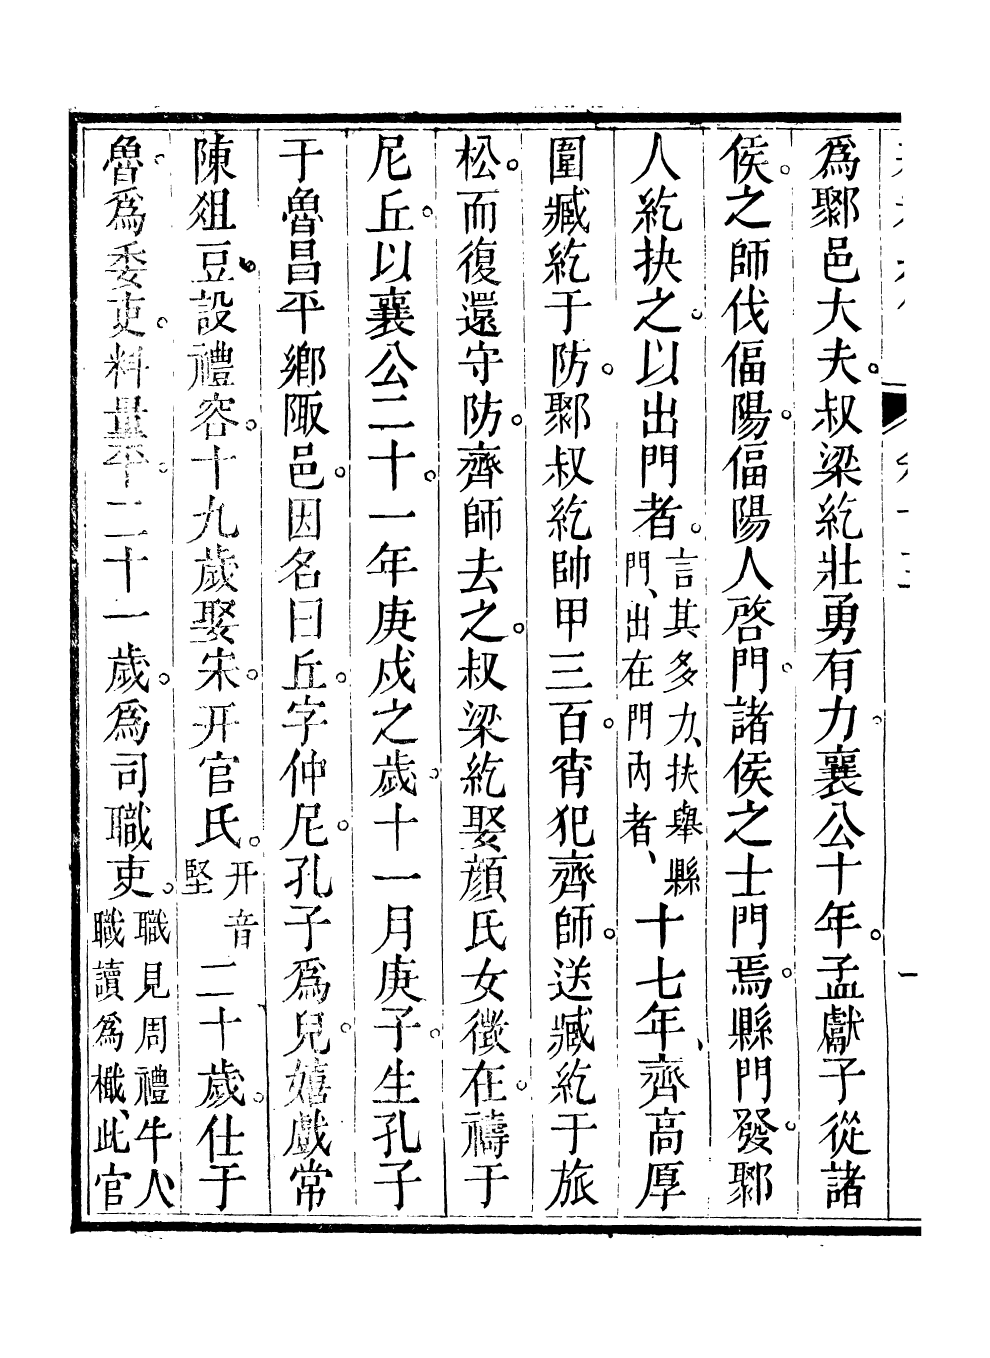 為鄹邑大夫。叔梁紇壯勇有力。襄公十年。孟獻子從諸
侯。之師伐偪陽。偪陽人啓門。諸侯之士門焉。縣門發。鄹
人紇抉之。以出門者。言其多力、抉舉縣門、出在門内者、十七年、齊高厚
圍臧紇于防。鄹叔紇帥甲三百。宵犯齊師。送臧紇于旅
松。而復還守防。齊師去之。叔梁紇娶顔氏女徵在。禱于
尼丘。以襄公二十。一年庚戍之歲。十一月庚子。生孔子
于魯昌平鄉陬邑。因名曰丘。字仲尼。孔子為兒。嬉戲常
陳俎豆。設禮容。十九歲娶宋。幵官氏。幵音堅二十歲。仕于
魯。為委吏。料量平。二十一歲。為司職吏。職見周禮牛人職讀為樴、此官